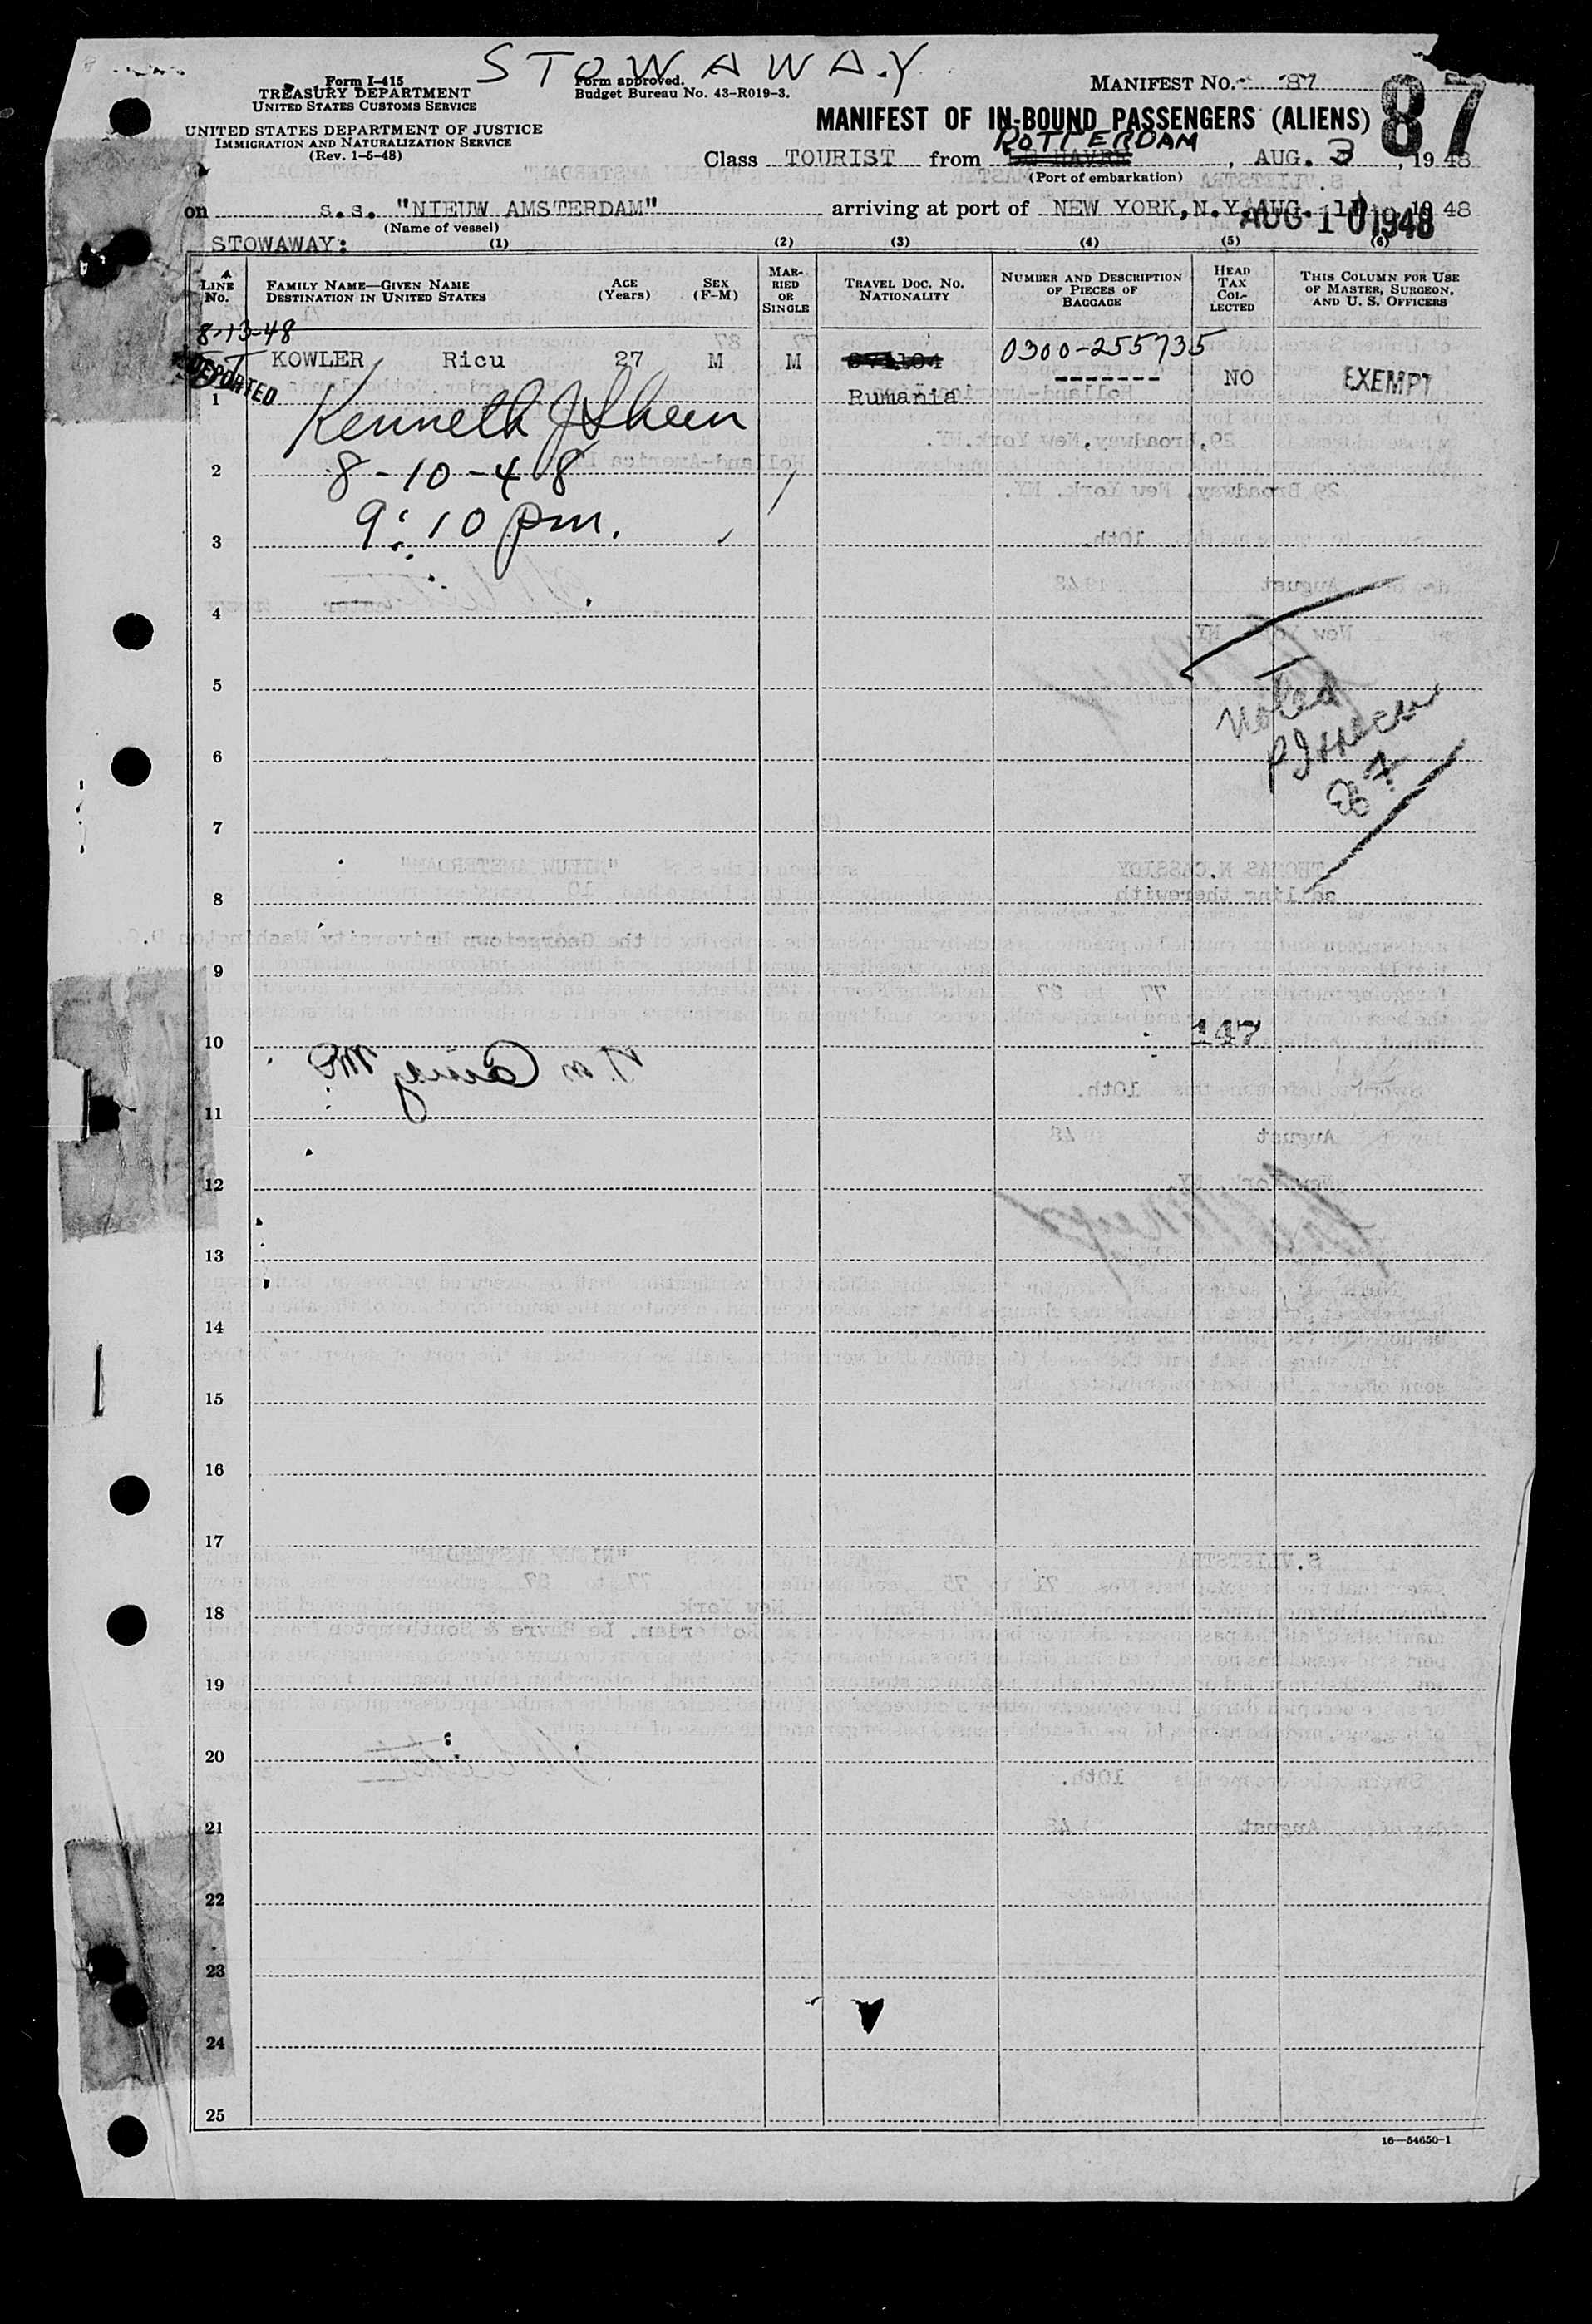 STOWAWAY
Form I-415
TREASURY DEPARTMENT
UNITED STATES CUSTOMS SERVICE
Form approved.
Budget Bureau No. 43-R019-3.
MANIFEST NO. 87
87
UNITED STATES DEPARTMENT OF JUSTICE
IMMIGRATION AND NATURALIZATION SERVICE
(Rev. 1-5-48)
MANIFEST OF IN-BOUND PASSENGERS (ALIENS)
ROTTERDAM
Class TOURIST from LE HAVRE, AUG. 3, 1948
(Port of embarkation)
on s.s. "NIEUW AMSTERDAM" arriving at port of NEW YORK, N.Y. AUG. 1948
(Name of vessel)
AUG 10 1948
STOWAWAY: (1) (2) (3) (4) (5) (6)
LINE NO.
FAMILY NAME—GIVEN NAME
DESTINATION IN UNITED STATES
AGE
(Years)
SEX
(F-M)
MAR-
RIED
OR
SINGLE
TRAVEL DOC. NO.
NATIONALITY
NUMBER AND DESCRIPTION
OF PIECES OF
BAGGAGE
HEAD
TAX
COL-
LECTED
THIS COLUMN FOR USE
OF MASTER, SURGEON,
AND U. S. OFFICERS
8-13-48
KOWLER Ricu 27 M M 0300-255735
DEPORTED
------- NO EXEMPT
1 Rumania
Kenneth J Sheen
2 8-10-48
3 9:10 pm.
4
5
Noted
6
87
7
8
9
10 147
11
12
13
14
15
16
17
18
19
20
21
22
23
24
25
16—54650-1